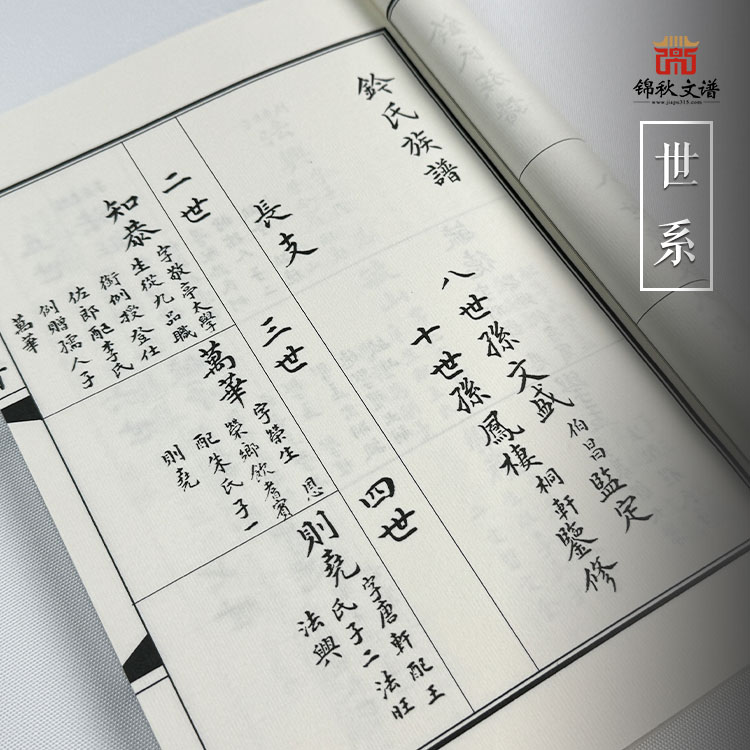 锦秋文谱
www.jiapu315.com
世系
鈴氏族譜
八世孫文盛伯昌監定
十世孫鳳棲桐軒鑒修
長支
二世
知恭
字敬亭太學
生從九品職
銜例授登仕
佐郎配李氏
例贈孺人子
萬華
三世
萬華
字榮生 恩
榮鄉飲耆賓
配朱氏子一
則堯
四世
則堯
字唐軒配王
氏子二法旺
法興